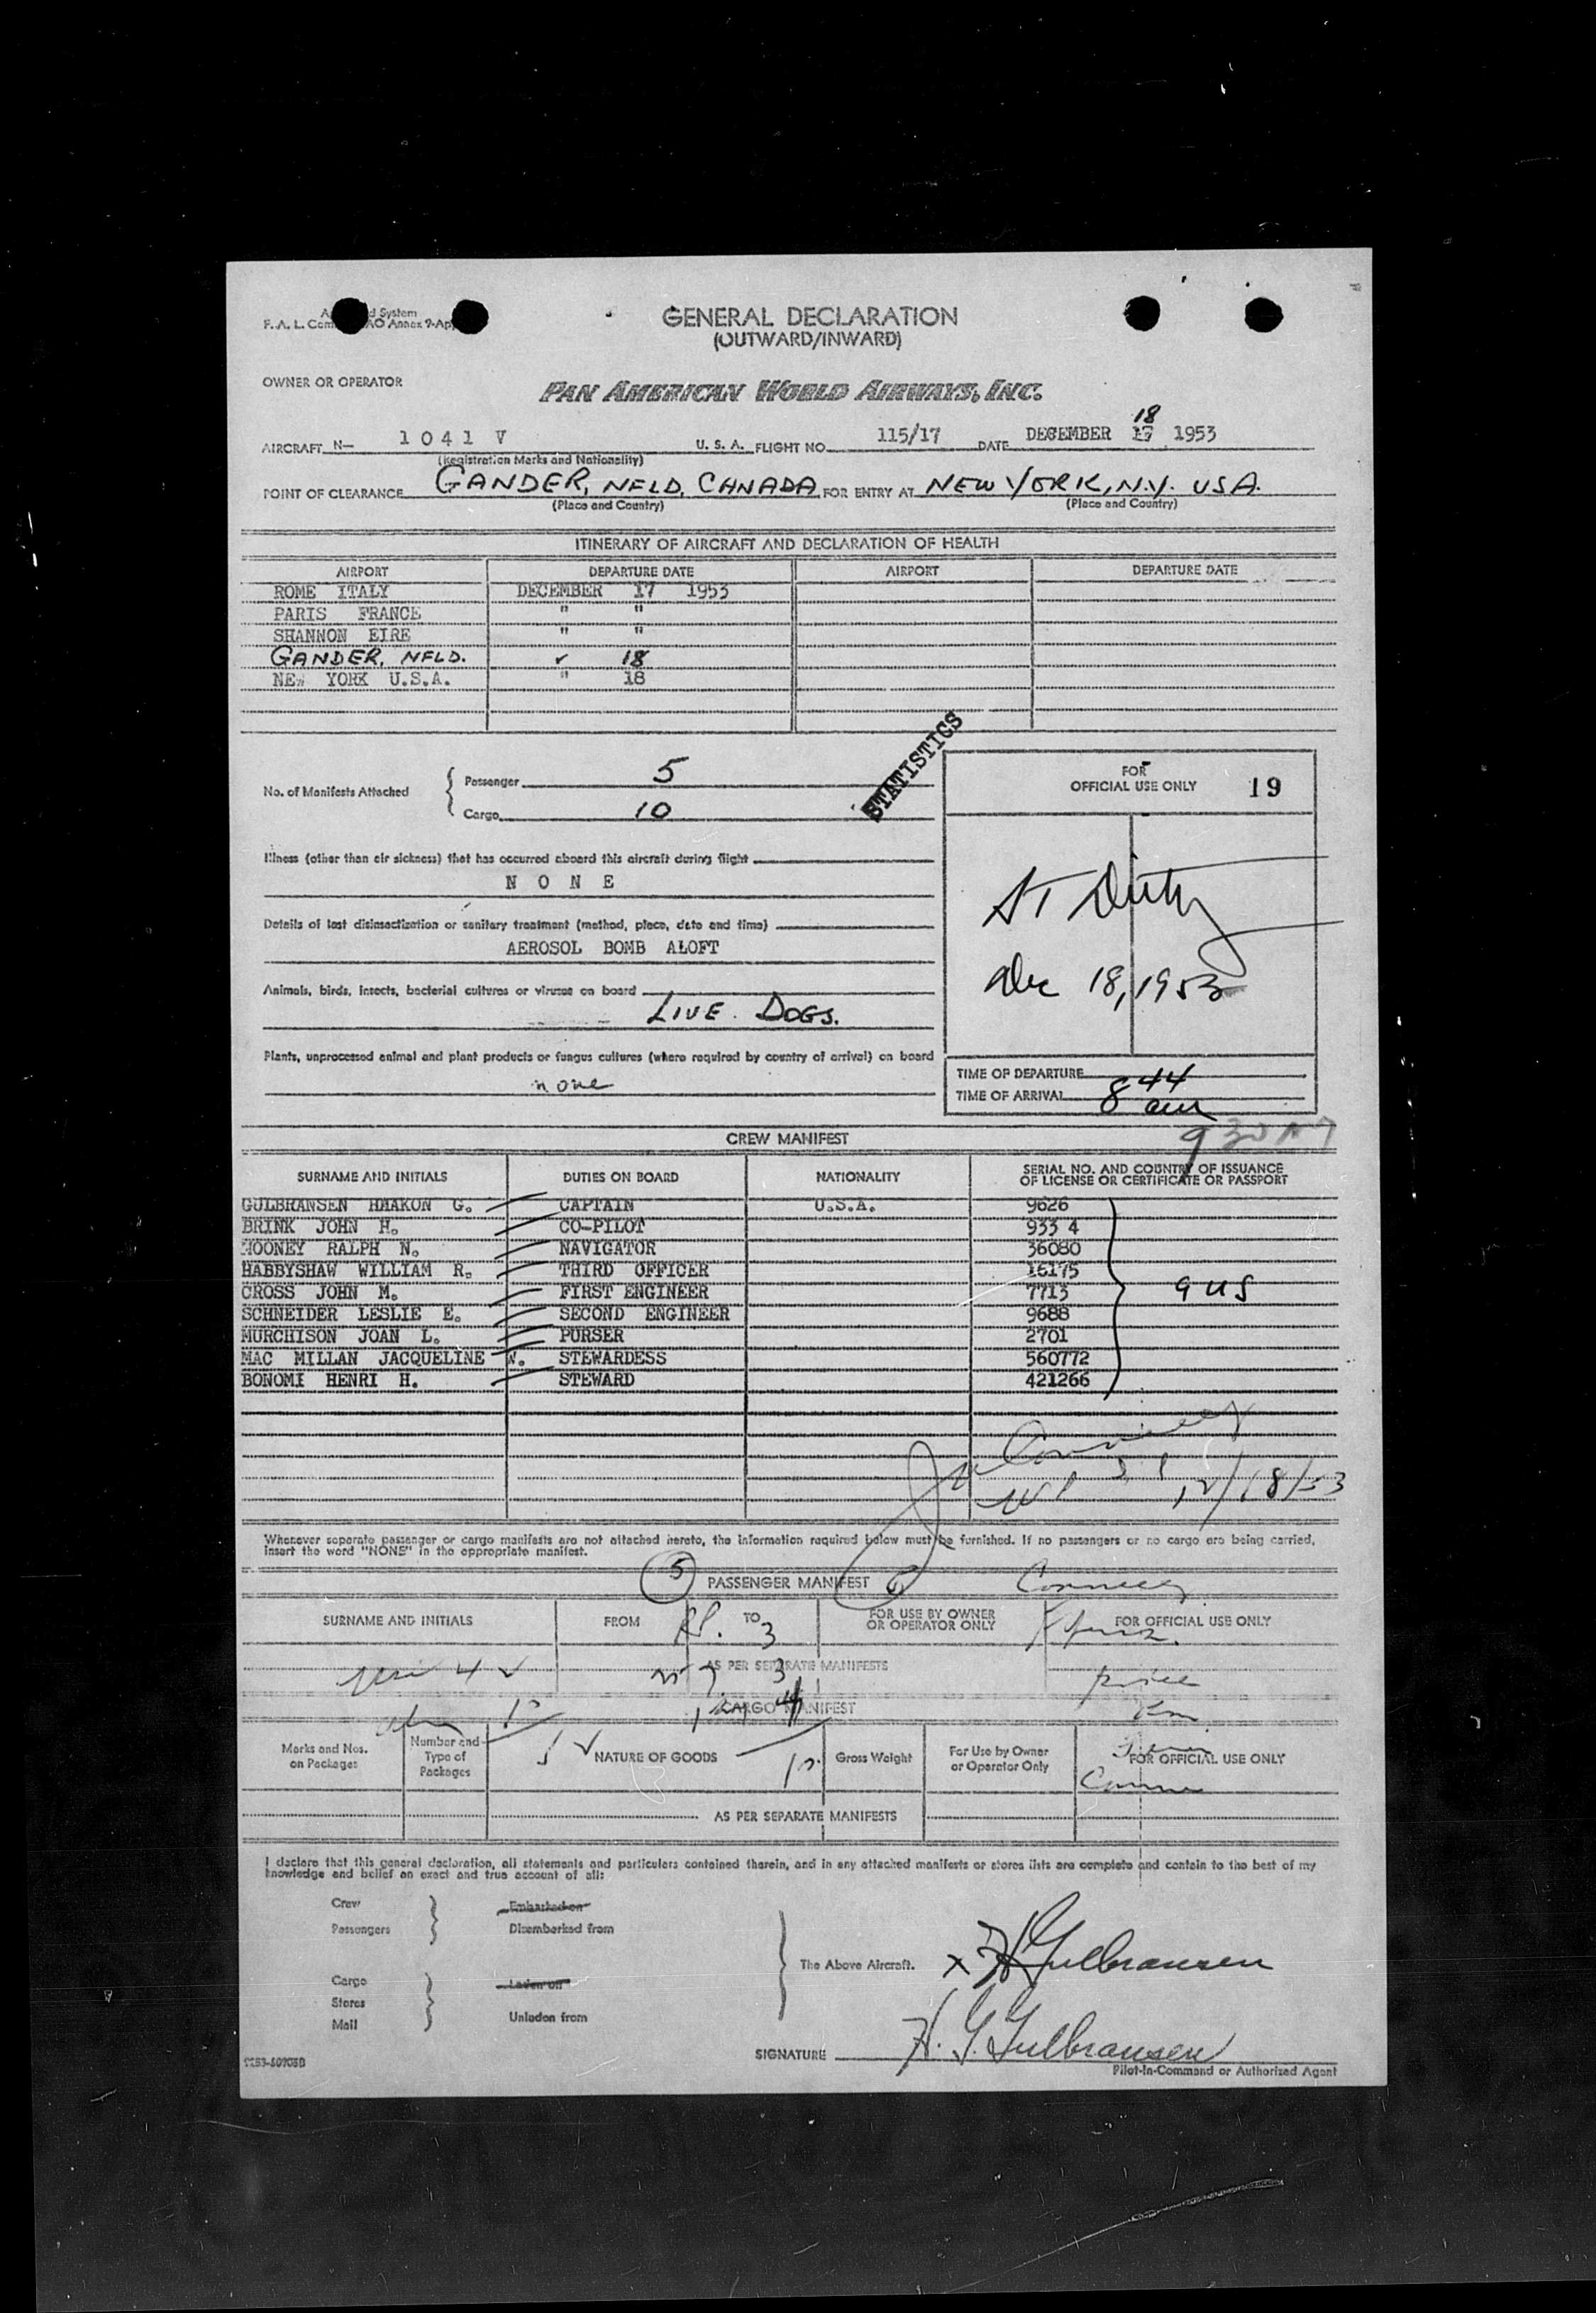 GENERAL DECLARATION
(OUTWARD/INWARD)
OWNER OR OPERATOR
PAN AMERICAN WORLD AIRWAYS, INC.
AIRCRAFT N- 1041 V U. S. A. FLIGHT NO. 115/17 DATE DECEMBER 17 18 1953
(Registration Marks and Nationality)
POINT OF CLEARANCE GANDER, NFLD, CANADA FOR ENTRY AT NEW YORK, N.Y. USA.
(Place and Country) (Place and Country)
ITINERARY OF AIRCRAFT AND DECLARATION OF HEALTH
AIRPORT DEPARTURE DATE AIRPORT DEPARTURE DATE
ROME ITALY DECEMBER 17 1953
PARIS FRANCE " "
SHANNON EIRE " "
GANDER, NFLD. 18
NEW YORK U.S.A. " 18
STATISTICS
No. of Manifests Attached
Passenger 5
Cargo 10
FOR
OFFICIAL USE ONLY 19
Illness (other than air sickness) that has occurred aboard this aircraft during flight
N O N E
Details of last disinsectization or sanitary treatment (method, place, date and time)
AEROSOL BOMB ALOFT
Dec 18, 1953
Animals, birds, insects, bacterial cultures or viruses on board
LIVE DOGS.
Plants, unprocessed animal and plant products or fungus cultures (where required by country of arrival) on board
none
TIME OF DEPARTURE
TIME OF ARRIVAL 8 44 am
CREW MANIFEST
SURNAME AND INITIALS DUTIES ON BOARD NATIONALITY SERIAL NO. AND COUNTRY OF ISSUANCE
OF LICENSE OR CERTIFICATE OR PASSPORT
GULBRANSEN HMAKON G. CAPTAIN U.S.A. 9626
BRINK JOHN H. CO-PILOT 933 4
MOONEY RALPH N. NAVIGATOR 36080
HABBYSHAW WILLIAM R. THIRD OFFICER 16175
CROSS JOHN M. FIRST ENGINEER 7713 9 US
SCHNEIDER LESLIE E. SECOND ENGINEER 9688
MURCHISON JOAN L. PURSER 2701
MAC MILLAN JACQUELINE W. STEWARDESS 560772
BONOMI HENRI H. STEWARD 421266
12/18/53
Whenever separate passenger or cargo manifests are not attached hereto, the information required below must be furnished. If no passengers or no cargo are being carried,
insert the word "NONE" in the appropriate manifest.
5 PASSENGER MANIFEST
SURNAME AND INITIALS FROM TO FOR USE BY OWNER FOR OFFICIAL USE ONLY
OR OPERATOR ONLY
AS PER SEPARATE MANIFESTS
CARGO MANIFEST
Marks and Nos. on Packages Number and Type of Packages NATURE OF GOODS Gross Weight For Use by Owner or Operator Only FOR OFFICIAL USE ONLY
AS PER SEPARATE MANIFESTS
I declare that this general declaration, all statements and particulars contained therein, and in any attached manifests or stores lists are complete and contain to the best of my
knowledge and belief an exact and true account of all:
Crew Embarked on
Passengers Disembarked from
The Above Aircraft. x H Gulbransen
Cargo Laden on
Stores
Mail Unladen from
SIGNATURE H. G. Gulbransen
Pilot-in-Command or Authorized Agent